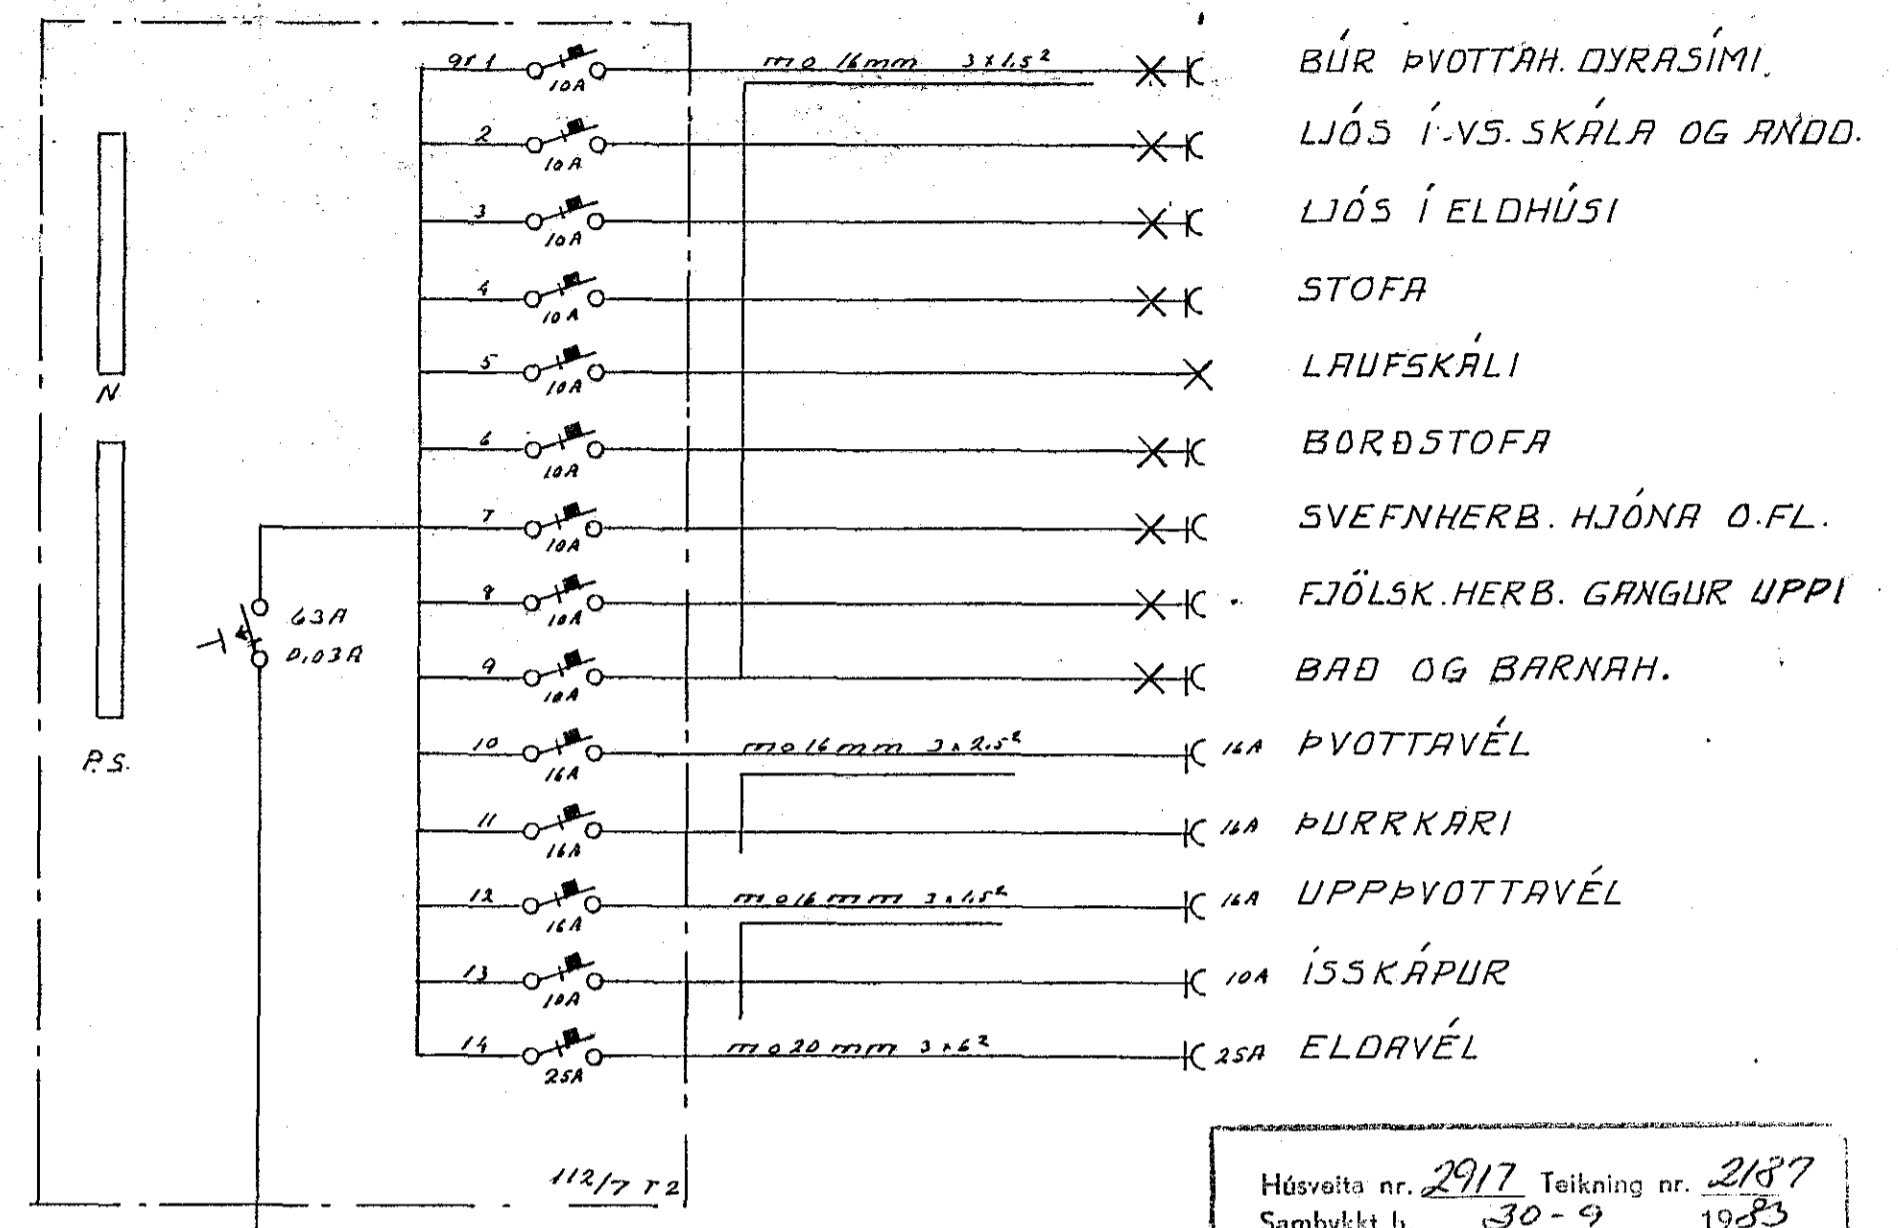 gr 1 10A mø 16mm 3x1.5² BÚR ÞVOTTAH. DYRASÍMI.
2 10A LJÓS Í VS. SKÁLA OG ANDD.
3 10A LJÓS Í ELDHÚSI
4 10A STOFA
5 10A LAUFSKÁLI
6 10A BORÐSTOFA
7 10A SVEFNHERB. HJÓNA O.FL.
8 10A FJÖLSK.HERB. GANGUR UPPI
9 10A BAÐ OG BARNAH.
10 16A mø 16mm 3x2.5² 16A ÞVOTTAVÉL
11 16A 16A ÞURRKARI
12 16A mø 16mm 3x1.5² 16A UPPÞVOTTAVÉL
13 10A 10A ÍSSKÁPUR
14 25A mø 20mm 3x6² 25A ELDAVÉL
N
P.S.
63A
0,03A
112/7 T2
Húsveita nr. 2917 Teikning nr. 2187
Samþykkt þ. 30-9 1983